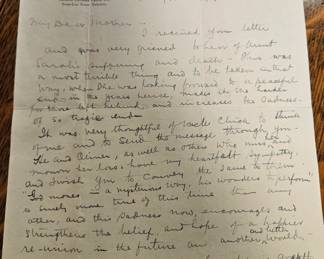 My Dear Mother -
I received your letter
and was very grieved to hear of Aunt
Sarah's suffering and death - This was
a most terrible thing and to be taken in that
way, when she was looking forward to a peaceful
end in the years hence, makes it the harder
for those left behind, and increases the sadness
of so tragic end -
It was very thoughtful of Uncle to think
of me and to send the message through you -
Lee and Oliver, as well as others who miss and
mourn her loss, have my heartfelt sympathy,
and I wish you to convey the same to them
"God moves in a mysterious way, his wonders to perform"
is surely more true of this time than any
other, and this sadness now, encourages and
strengthens the belief and hope of a happier
re-union in the future and another and better world -